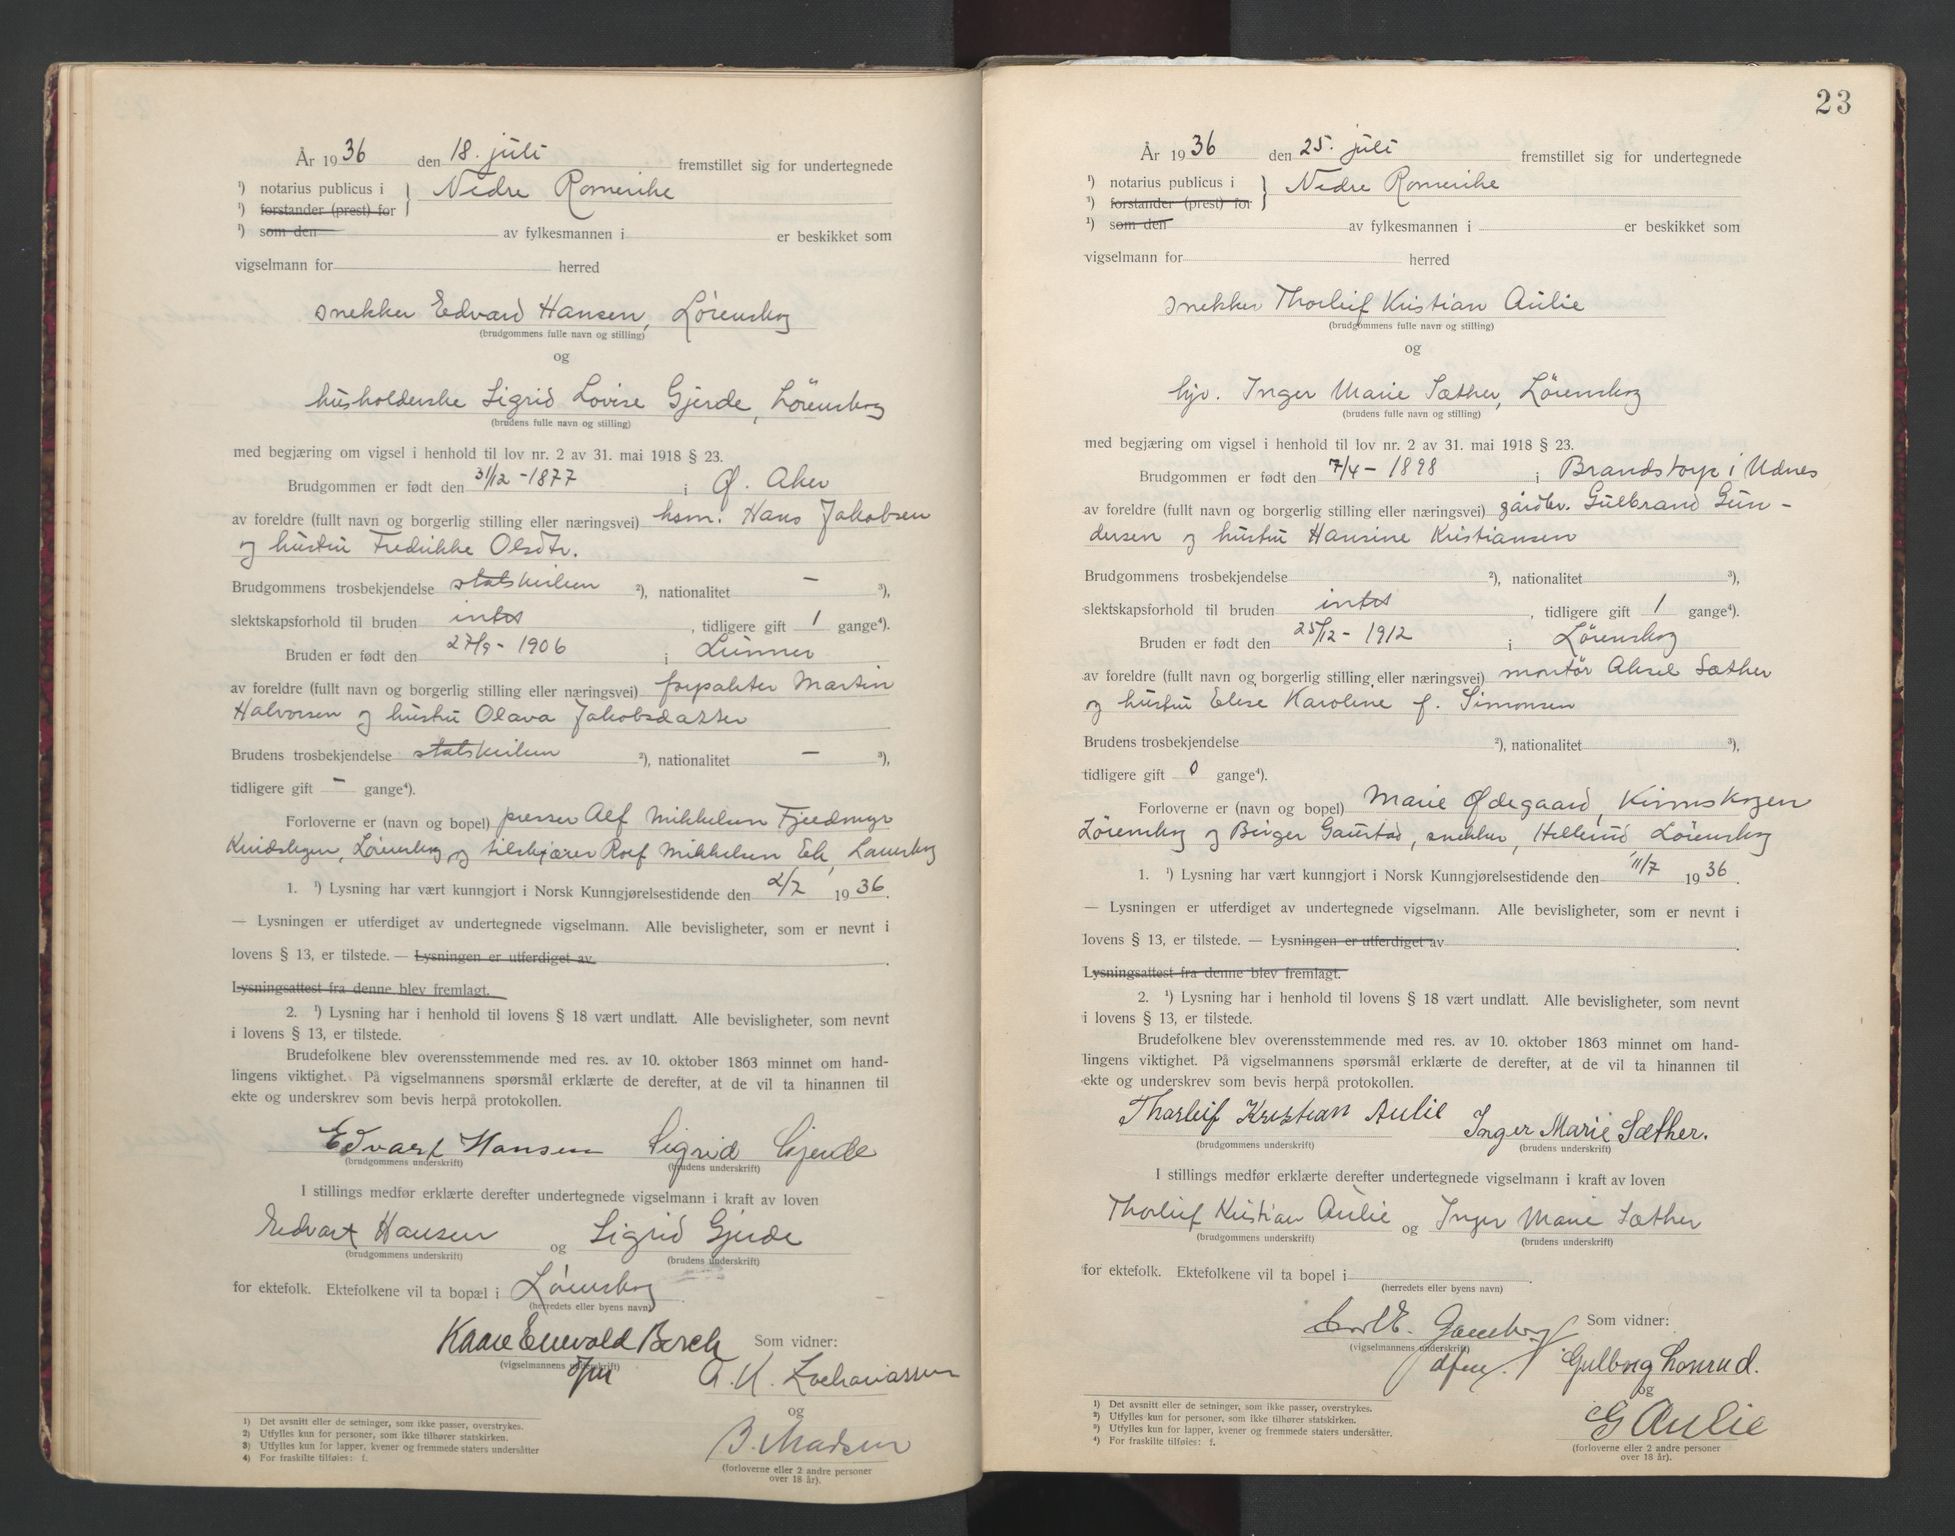 År 1936 den 18. juli fremstillet sig for undertegnede
¹) notarius publicus i } Nedre Romerike
¹) forstander (prest) for
¹) som den av fylkesmannen i er beskikket som
vigselmann for herred
snekker Edvard Hansen, Lørenskog
(brudgommens fulle navn og stilling)
og
husholderske Sigrid Lovise Gjerde, Lørenskog
(brudens fulle navn og stilling)
med begjæring om vigsel i henhold til lov nr. 2 av 31. mai 1918 § 23.
Brudgommen er født den 31/12-1877 i Ø. Aker
av foreldre (fullt navn og borgerlig stilling eller næringsvei) hsm. Hans Jakobsen
og hustru Fredrikke Olsdtr.
Brudgommens trosbekjendelse statskirken ²), nationalitet — ³),
slektskapsforhold til bruden intet, tidligere gift 1 gange⁴).
Bruden er født den 27/9-1906 i Lunner
av foreldre (fullt navn og borgerlig stilling eller næringsvei) forpakter Martin
Halvorsen og hustru Olava Jakobsdatter
Brudens trosbekjendelse statskirken ²), nationalitet — ³),
tidligere gift — gange⁴).
Forloverne er (navn og bopel) presser Alf Mikkelsen Fjeldmyr
Lørenskog og tilskjærer Rolf Mikkelsen Ek, Lørenskog
1. ¹) Lysning har vært kunngjort i Norsk Kunngjørelsestidende den 2/7 1936.
— Lysningen er utferdiget av undertegnede vigselmann. Alle bevisligheter, som er nevnt i
lovens § 13, er tilstede. — Lysningen er utferdiget av
Lysningsattest fra denne blev fremlagt.
2. ¹) Lysning har i henhold til lovens § 18 vært undlatt. Alle bevisligheter, som nevnt
i lovens § 13, er tilstede.
Brudefolkene blev overensstemmende med res. av 10. oktober 1863 minnet om hand-
lingens viktighet. På vigselmannens spørsmål erklærte de derefter, at de vil ta hinannen til
ekte og underskrev som bevis herpå protokollen.
Edvart Hansen Sigrid Gjerde
(brudgommens underskrift) (brudens underskrift)
I stillings medfør erklærte derefter undertegnede vigselmann i kraft av loven
Edvart Hansen og Sigrid Gjerde
(brudgommens underskrift) (brudens underskrift)
for ektefolk. Ektefolkene vil ta bopæl i Lørenskog
(herredets eller byens navn)
Kaare Enevold Borch Som vidner:
(vigselmannens underskrift)
A. K. Zachariassen
og
B. Madsen
(forloverne eller 2 andre personer
over 18 år).
1) Det avsnitt eller de setninger, som ikke passer, overstrykes.
2) Utfylles kun for personer, som ikke tilhører statskirken.
3) Utfylles kun for lapper, kvener og fremmede staters undersåtter
4) For fraskilte tilføies: f.
23
År 1936 den 25. juli fremstillet sig for undertegnede
¹) notarius publicus i } Nedre Romerike
¹) forstander (prest) for
¹) som den av fylkesmannen i er beskikket som
vigselmann for herred
snekker Thorleif Kristian Aulie
(brudgommens fulle navn og stilling)
og
hjv. Inger Marie Sæther, Lørenskog
(brudens fulle navn og stilling)
med begjæring om vigsel i henhold til lov nr. 2 av 31. mai 1918 § 23.
Brudgommen er født den 7/4-1898 i Brandstorp i Udnes
av foreldre (fullt navn og borgerlig stilling eller næringsvei) gårdbr. Gulbrand Gun-
dersen og hustru Hansine Kristiansen
Brudgommens trosbekjendelse ²), nationalitet ³),
slektskapsforhold til bruden intet, tidligere gift 1 gange⁴).
Bruden er født den 25/12-1912 i Lørenskog
av foreldre (fullt navn og borgerlig stilling eller næringsvei) montør Aksel Sæther
og hustru Elise Karoline f. Simonsen
Brudens trosbekjendelse ²), nationalitet ³),
tidligere gift 0 gange⁴).
Forloverne er (navn og bopel) Marie Ødegaard,
Lørenskog og Birger Gaustad, snekker, Hellerud Lørenskog
1. ¹) Lysning har vært kunngjort i Norsk Kunngjørelsestidende den 11/7 1936.
— Lysningen er utferdiget av undertegnede vigselmann. Alle bevisligheter, som er nevnt i
lovens § 13, er tilstede. — Lysningen er utferdiget av
Lysningsattest fra denne blev fremlagt.
2. ¹) Lysning har i henhold til lovens § 18 vært undlatt. Alle bevisligheter, som nevnt
i lovens § 13, er tilstede.
Brudefolkene blev overensstemmende med res. av 10. oktober 1863 minnet om hand-
lingens viktighet. På vigselmannens spørsmål erklærte de derefter, at de vil ta hinannen til
ekte og underskrev som bevis herpå protokollen.
Thorleif Kristian Aulie Inger Marie Sæther.
(brudgommens underskrift) (brudens underskrift)
I stillings medfør erklærte derefter undertegnede vigselmann i kraft av loven
Thorleif Kristian Aulie og Inger Marie Sæther
(brudgommens underskrift) (brudens underskrift)
for ektefolk. Ektefolkene vil ta bopel i
(herredets eller byens navn)
Som vidner:
(vigselmannens underskrift)
og
G Aulie
(forloverne eller 2 andre personer
over 18 år).
1) Det avsnitt eller de setninger, som ikke passer, overstrykes.
2) Utfylles kun for personer, som ikke tilhører statskirken.
3) Utfylles kun for lapper, kvener og fremmede staters undersåtter.
4) For fraskilte tilføies: f.